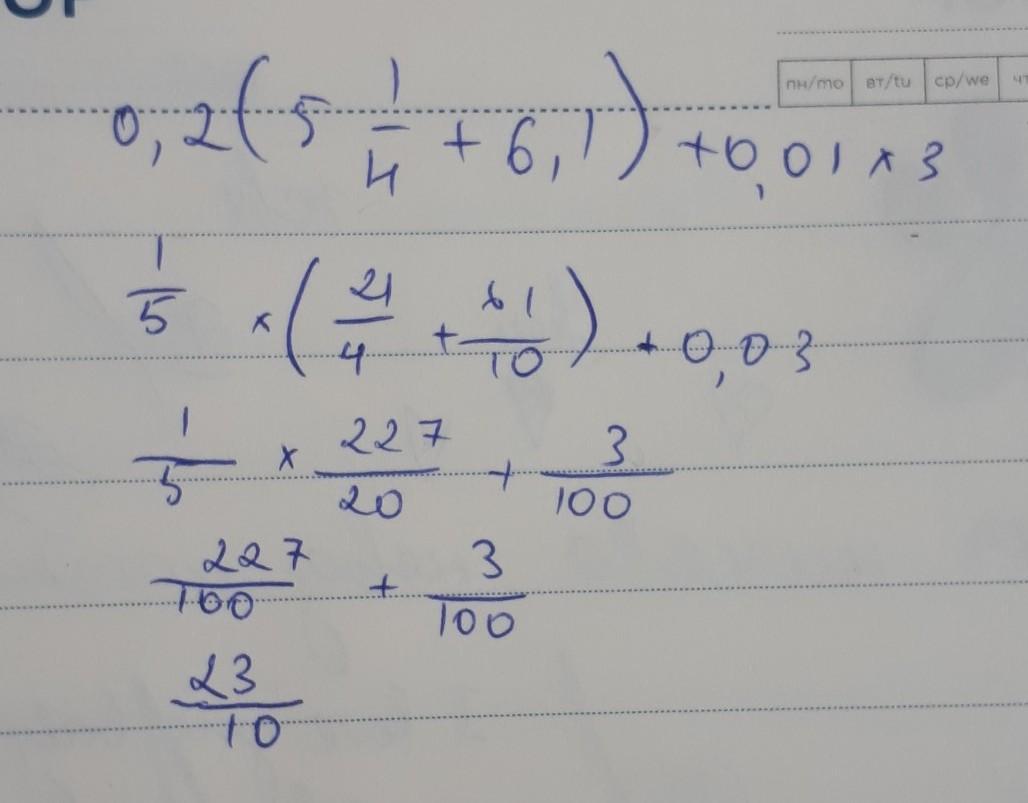 пн/mo вт/tu ср/we
0,2(5 1/4 + 6,1) + 0,01 × 3
1/5 × (21/4 + 61/10) + 0,03
1/5 × 227/20 + 3/100
227/100 + 3/100
23/10